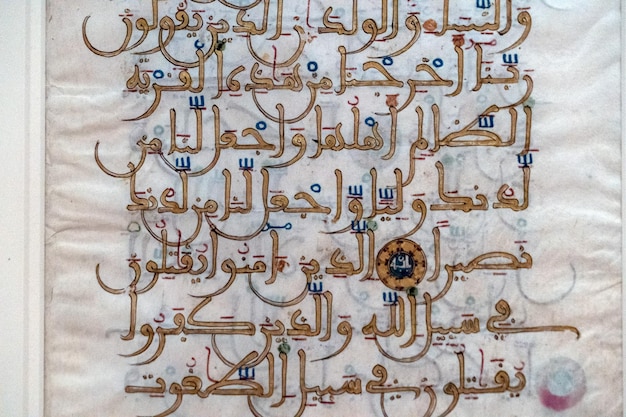 وَالنِّسَآءِ وَالْوِلْدَٰنِ الَّذِينَ يَقُولُونَ
رَبَّنَآ أَخْرِجْنَا مِنْ هَٰذِهِ الْقَرْيَةِ
الظَّالِمِ أَهْلُهَا وَاجْعَل لَّنَا مِن
لَّدُنكَ وَلِيًّا وَاجْعَل لَّنَا مِن لَّدُنكَ
نَصِيرًا الَّذِينَ ءَامَنُوا يُقَٰتِلُونَ
فِي سَبِيلِ اللَّهِ وَالَّذِينَ كَفَرُوا
يُقَٰتِلُونَ فِي سَبِيلِ الطَّٰغُوتِ